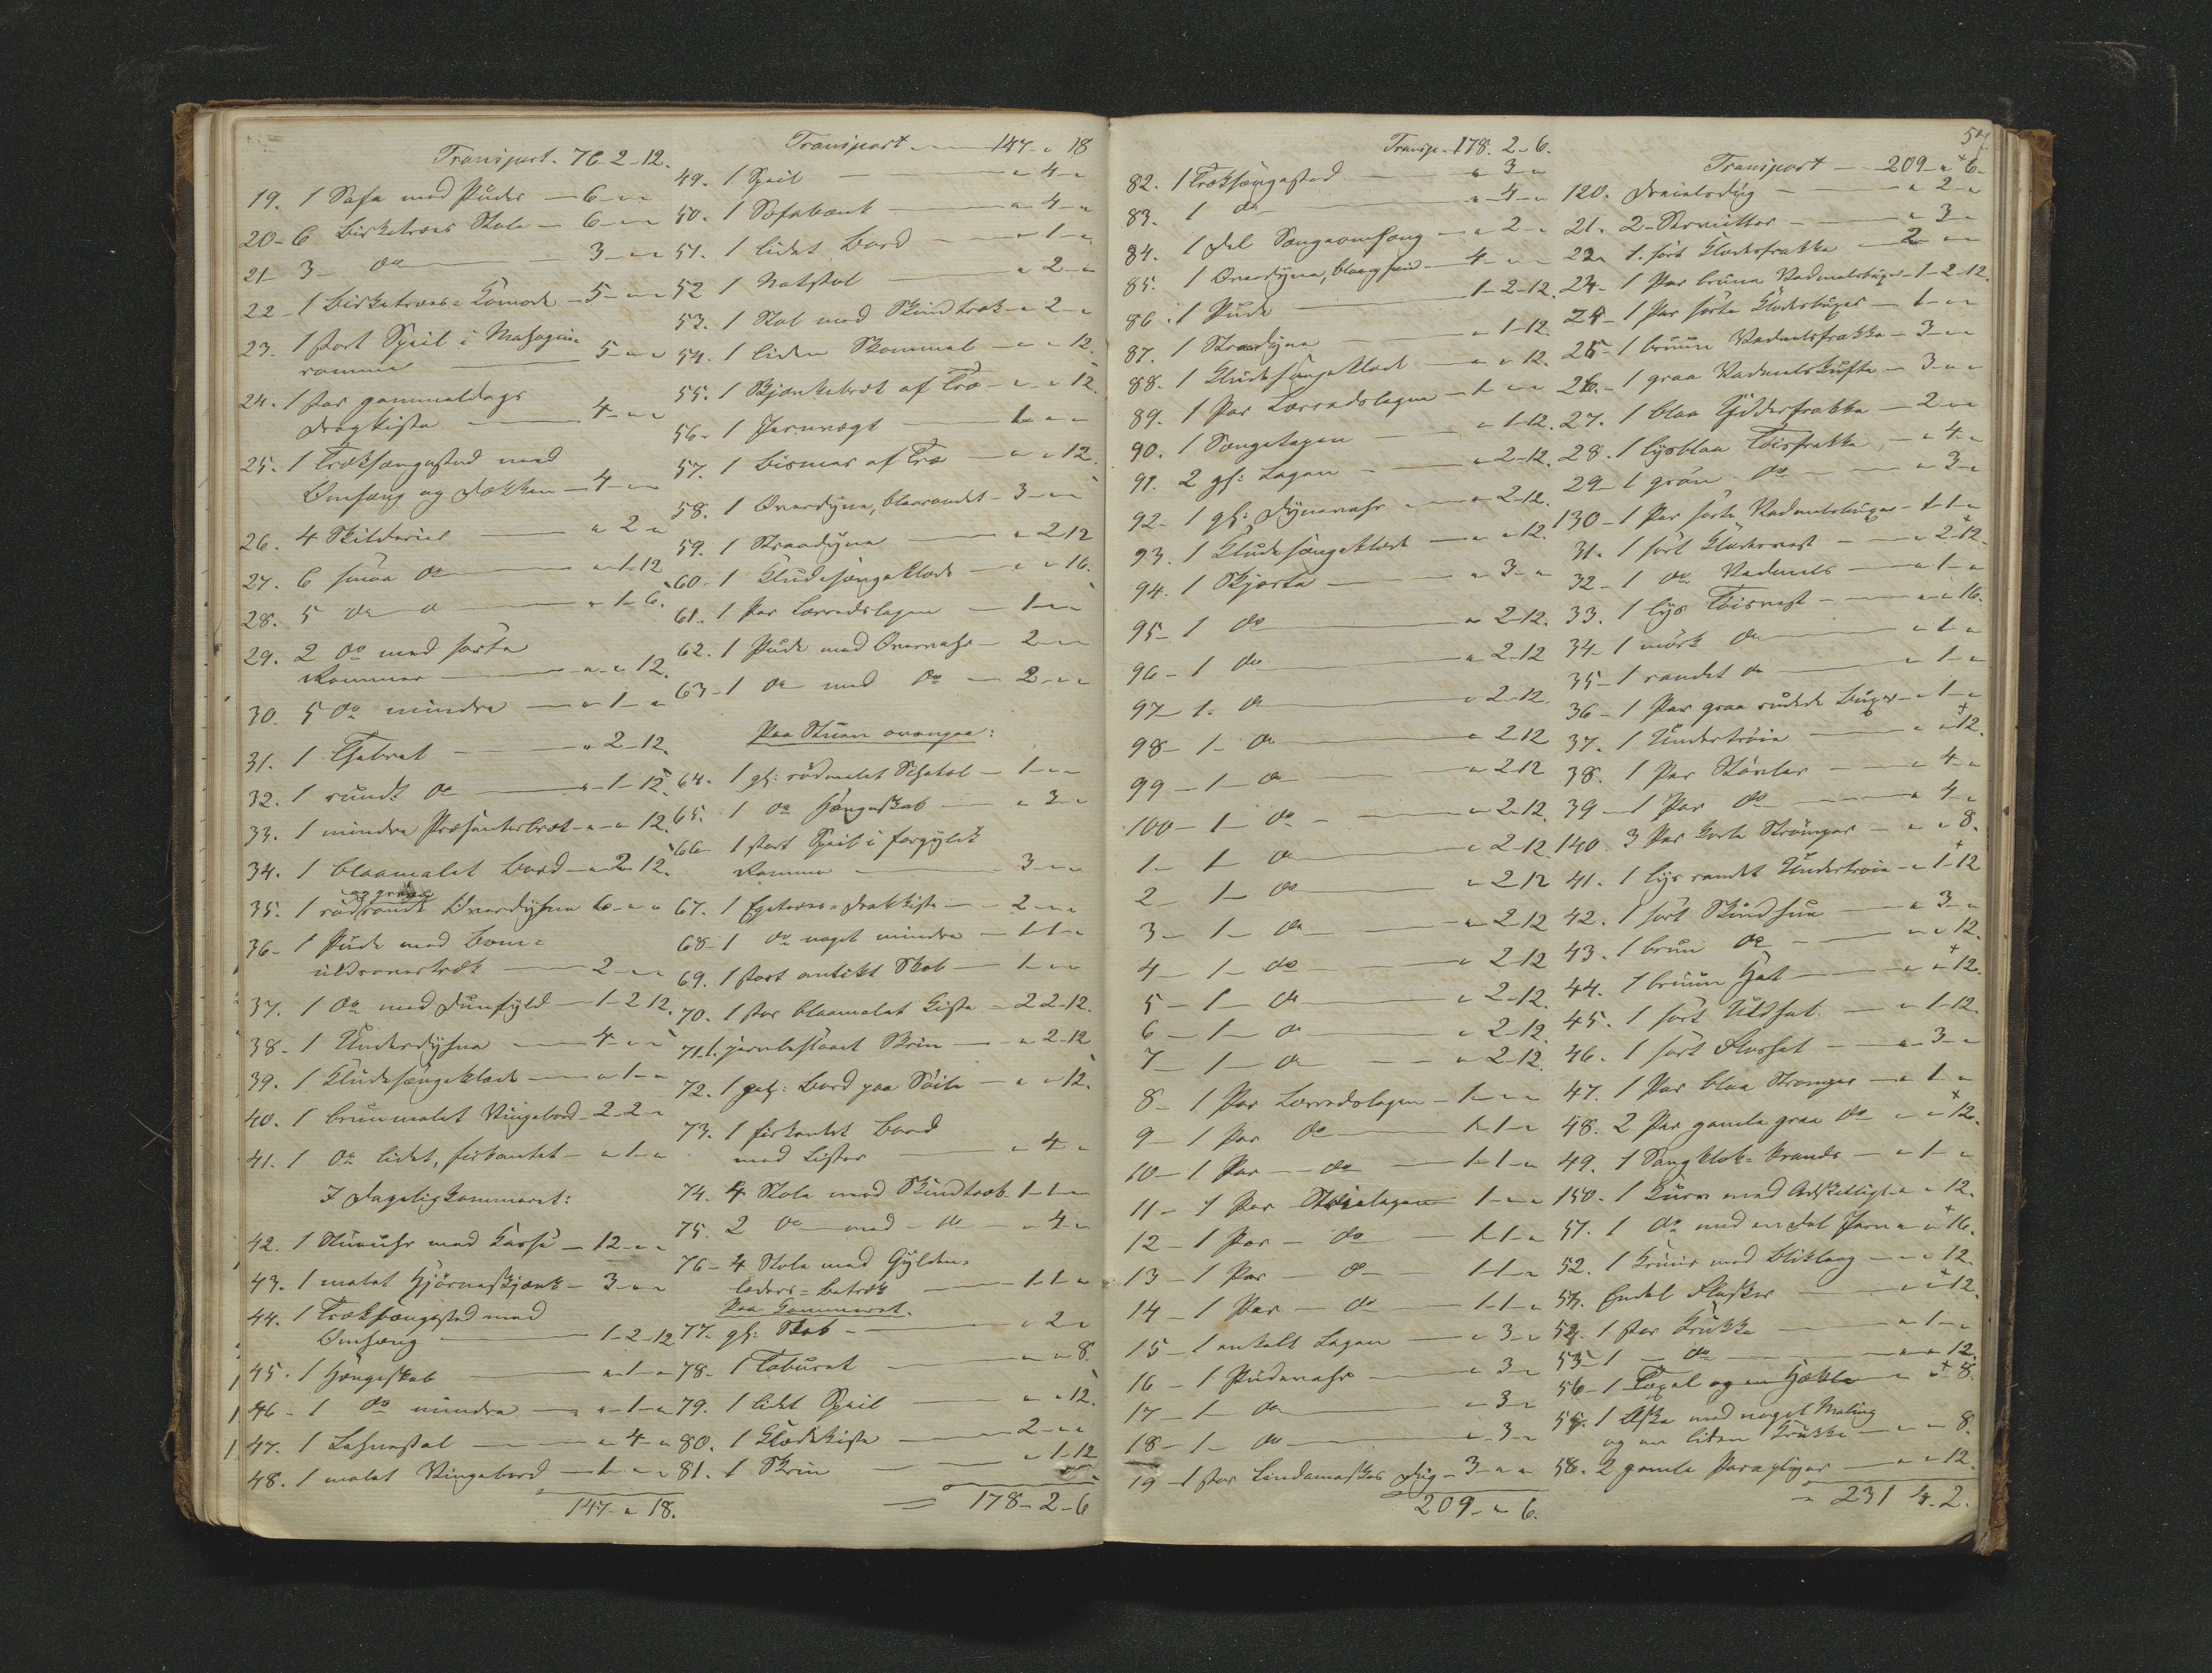 Transport. 76-2-12.
19. 1 Sofa med Puder — 6 - " - "
20 - 6 Birketræes Stole — 6 - " - "
21 - 3 - do — 3 - " - "
22 - 1 Birketræes= Komode — 5 - " - "
23. 1 stort Speil i Mahogni
ramme — 5 - " - "
24. 1 stor gammeldags
Dragkiste — 4 - " - "
25. 1 Træksengested med
Omhæng og Dækken — 4 - " - "
26. 4 Skilderier — " 2 - "
27. 6 smaa do — " - 1 - 12
28. 5 do — " 1 - 6.
29. 2 do med sorte
Rammer — " - " 12.
30. 5 do mindre — " 1 - "
31. 1 Thebret — " 2 - 12.
32. 1 rundt do — " - 1 - 12
33. 1 mindre Præsenterbret — " - " 12.
34. 1 blaamalet Bord — " 2 - 12.
35. 1 rødrandet Overdyhne 6 - " - "
36 - 1 Pude med Bom=
uldsovertræk — 2 - " - "
37. 1 do med Dunfyld — 1 - 2 12.
38 - 1 Underdyhne — 4 - " - "
39. 1 Kludesengeklæde — " 1 - "
40. 1 brunmalet Vingebord - 2 - 2 - "
41. 1 do lidet, firkantet — " 1 - "
I Dagligkammeret:
42. 1 Stueuhr med Kasse — 12 - " - "
43. 1 malet Hjørneskjænk — 3 - " - "
44. 1 Træksengested med
Omhæng — 1 - 2 - 12
45. 1 Hængeskab — " 1 - "
46 - 1 do mindre — " - 1 - "
47. 1 Lehnestol — " 4 - "
48. 1 malet Vingebord — 1 - " - "
147 - " 18.
Transport — 147 - " 18
49. 1 Speil — " 4 - "
50. 1 Sofabænk — " 4 - "
51. 1 lidet Bord — " 1 - "
52 1 Natstol — " 2 - "
53. 1 Stol med Skindtræk — " 2 - "
54. 1 liden Skammel — " - " 12.
55. 1 Skjænkebret af Træ — " - " 12.
56 - 1 Jernvægt — 1 - " - "
57. 1 Bismer af Træ — " - " 12.
58. 1 Overdyne, blaarandet - 3 - " - "
59. 1 Straadyne — " 2 - 12
60 - 1 Kludesengeklæde — " - " 16.
61. 1 Par Lærredslagen — 1 - " - "
62. 1 Pude med Overvahr — 2 - " - "
63 - 1 do med do — 2 - " - "
Paa Stuen ovenpaa:
64. 1 gl: rødmalet Schatol — 1 - " - "
65. 1 do Hængeskab — " 3 - "
66 - 1 stort Speil i forgyldt
Ramme — 3 - " - "
67. 1 Egetræes= Drakkiste — 2 - " - "
68 - 1 do noget mindre — 1 - 1 - "
69. 1 stort antikt Skab — 1 - " - "
70. 1 stor blaamalet Kiste — 2 2 - 12.
71. 1. jernbeslaaet Skrin — " 2 - 12
72. 1 gl: Bord paa Søile — " - " 12.
73. 1 firkantet Bord
med Lister — " 4 - "
74. 4 Stole med Skindtræk 1 - 1 - "
75. 2 do med - do — " 4 - "
76 - 4 Stole med Gylden=
læders= Betræk — 1 - 1 - "
Paa Kammeret.
77. gl: Skab — " 2 - "
78. 1 Taburet — " - " 8.
79. 1 lidet Speil — " - " 12.
80. 1 Klædekiste — 2 - " - "
81. 1 Skrin — " 1 - 12
= 178 - 2 - 6
Transp. 178. 2 - 6.
82. 1 Træksengested — " 3 - "
83. 1 do — " - 4 - "
84. 1 Del Sengeomhæng — " 2 - "
85. 1 Overdyne, — 4 - " - "
86. 1 Pude — 1 - 2 - 12.
87. 1 Straadyne — " 1 - 12.
88. 1 Kludesengeklæde — " - " 12.
89. 1 Par Lærredslagen — 1 - " - "
90. 1 Sengelagen — " 1 - 12.
91. 2 gl: Lagen — " 2 - 12.
92 - 1 gl: Dynevahr — " 2 - 12.
93. 1 Kludesengeklæde — " - " 12.
94. 1 Skjorte — " 3 - "
95 - 1 do — " 2 - 12.
96 - 1 do — " 2 - 12
97 - 1. do — " 2 - 12.
98 - 1 - do — " 2 - 12
99 - 1 - do — " 2 12
100 - 1 - do — " 2 - 12.
1 - 1 - do — " 2 - 12.
2 - 1 - do — " 2 12
3 - 1 - do — " 2 - 12
4 - 1 - do — " 2 - 12
5 - 1 - do — " 2 - 12.
6 - 1 - do — " 2 - 12.
7 - 1 - do — " 2 - 12.
8 - 1 Par Lærredslagen — 1 - " - "
9 - 1 Par do — 1 - 1 - "
10 - 1 Par - do — 1 - 1 - "
11 - 1 Par Strielagen — 1 - " - "
12 - 1 Par - do — 1 - 1 - "
13 - 1 Par - do — 1 - 1 - "
14 - 1 Par - do — 1 - 1 - "
15 - 1 enkelt Lagen — " 3 - "
16 - 1 Pudevahr — " 3 - "
17 - 1 - do — " 3 - "
18 - 1 - do — " 3 - "
19 - 1 stor Lindamaskes Dug - 3 - " - "
209 - " 6.
54.
Transport — 209 - " 6 -
120. Dreielsdug — " 2 - "
21. 2 - Servietter — " 3 - "
22. 1. sort Klædesfrakke — 2 - " - "
23 - 1 Par brune Vadmelsbuxer - 1 - 2 - 12.
24 - 1 Par sorte Klædesbuxer — 1 - " - "
25 - 1 bruun Vadmelsfrakke — 3 - " - "
26. - 1 graa Vadmelskufte — 3 - " - "
27. 1 blaa frakke — 2 - " - "
28. 1 lysblaa Tøisfrakke — " 4 - "
29 - 1 grøn do — " 3 - "
130 - 1 Par sorte Vadmelsbuxer — 1 - 1 - "
31. 1 sort Klædesvest — " 2 - 12.
32 - 1 do Vadmels — " 1 - "
33. 1 lys Tøisvest — " - " 16.
34 - 1 mørk do — " 1 - "
35 - 1 randet do — " 1 - "
36 - 1 Par graa rudede Buxer — " 1 - "
37. 1 Undertrøie — " - " 12.
38. 1 Par Støvler — " 4 - "
39 - 1 Par do — " 4 - "
140. 3 Par korte Strømper — " - " 8.
41. 1 lys randet Undertrøie — " 1 - 12
42. 1 sort Skindhue — " 3 - "
43. 1 brun do — " - " 12.
44. 1 bruun Hat — " - " 12.
45. 1 sort Uldhat — " 1 - 12.
46. 1 sort Floshat — " 3 - "
47. 1 Par blaa Strømper — " 1 - "
48. 2 Par gamle graa do — " - " 12.
49. 1 — " 1 - "
150. 1 Kurv med Adskilligt — " - " 12.
51. 1 do med en Del Jern — " - " 16.
52. 1 med Bliklaag — " - " 12.
53. Endel Flasker — " - " 12.
54. 1 stor Krukke — " 1 - "
55 - 1 - do — " - " 12.
56 - 1 Tæxel og en Høkle — " - " 8.
57. 1 Æske med noget Maling
og en liden Krukke — " - " 8.
58. 2 gamle Paraplyer — " - " 12.
= 231 4 - 2.